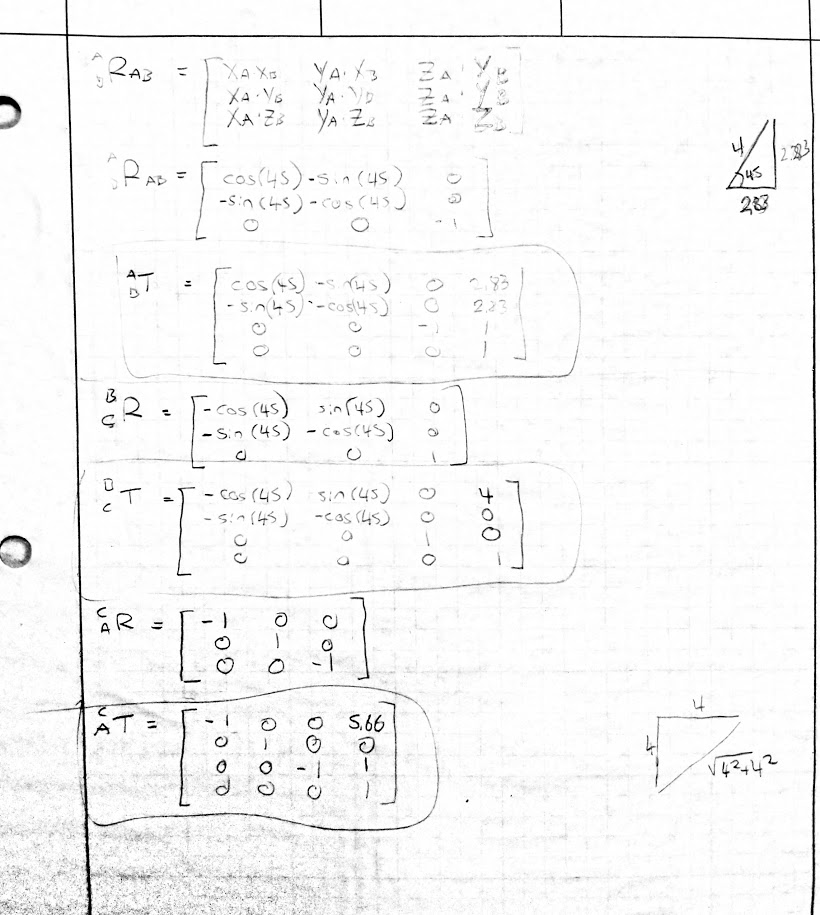 A B R AB = [ XA XB YA·XB ZA·YB
XA·YB YA·YB ZA·YB
XA·ZB YA·ZB ZA ZB ]
4 45 2.83
2.83
A B R AB = [ cos(45) -sin(45) 0
-sin(45) -cos(45) 0
0 0 -1 ]
A B T = [ cos(45) -sin(45) 0 2.83
-sin(45) -cos(45) 0 2.83
0 0 -1 1
0 0 0 1 ]
B C R = [ -cos(45) sin(45) 0
-sin(45) -cos(45) 0
0 0 1 ]
B C T = [ -cos(45) sin(45) 0 4
-sin(45) -cos(45) 0 0
0 0 1 0
0 0 0 1 ]
C A R = [ -1 0 0
0 1 0
0 0 -1 ]
C A T = [ -1 0 0 5.66
0 1 0 0
0 0 -1 1
0 0 0 1 ]
4
4 √4²+4²